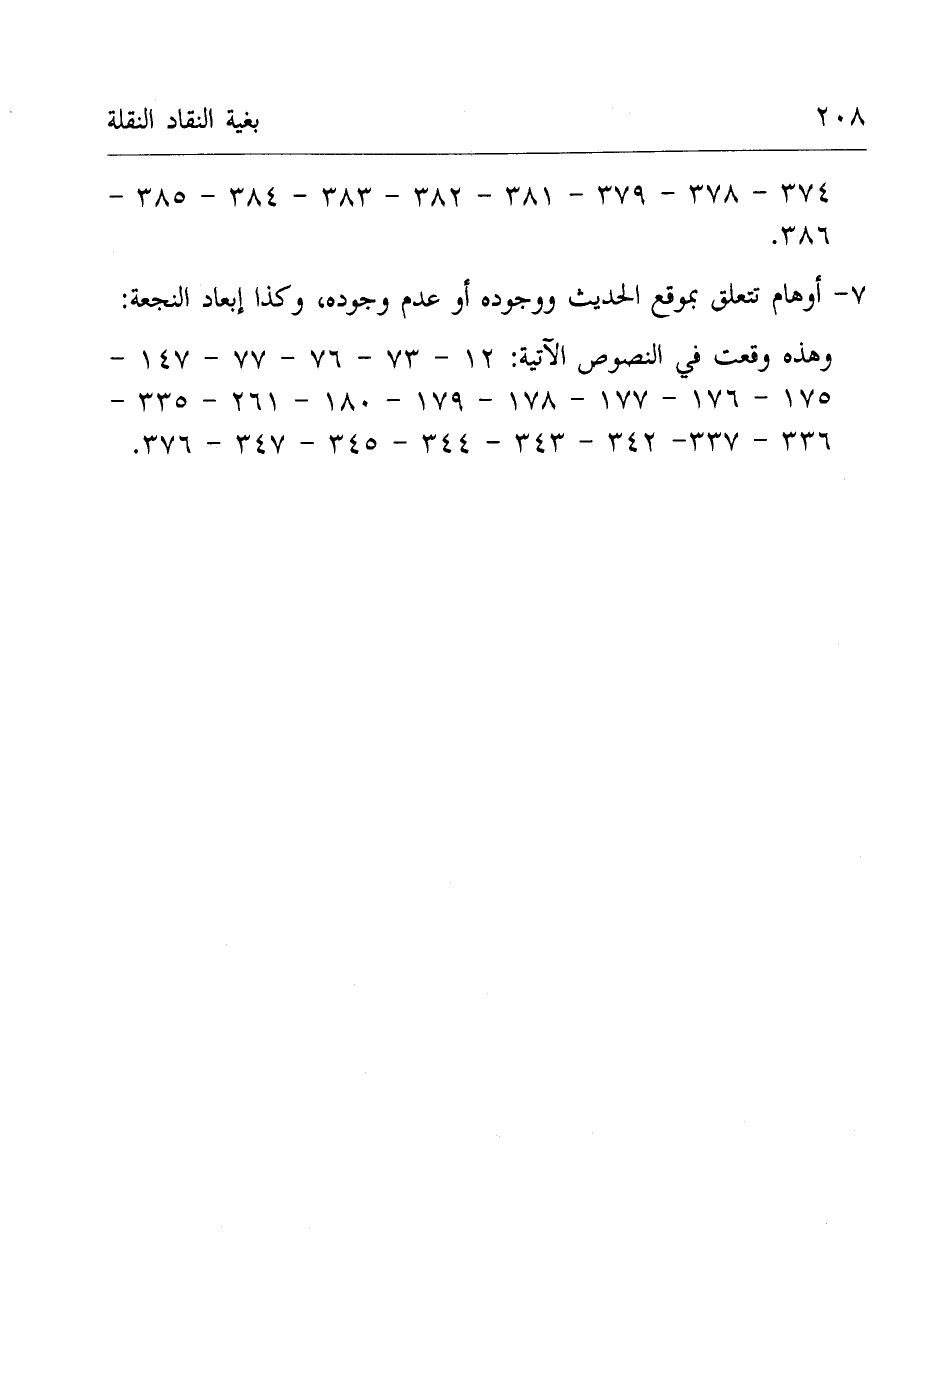 ٢٠٨ بغية النقاد النقلة
٣٧٤ – ٣٧٨ – ٣٧٩ – ٣٨١ – ٣٨٢ – ٣٨٣ – ٣٨٤ – ٣٨٥ –
٣٨٦.
٧- أوهام تتعلق بموقع الحديث ووجوده أو عدم وجوده، وكذا إبعاد النجعة:
وهذه وقعت في النصوص الآتية: ١٢ – ٧٣ – ٧٦ – ٧٧ – ١٤٧ –
١٧٥ – ١٧٦ – ١٧٧ – ١٧٨ – ١٧٩ – ١٨٠ – ٢٦١ – ٣٣٥ –
٣٣٦ – ٣٣٧- ٣٤٢ – ٣٤٣ – ٣٤٤ – ٣٤٥ – ٣٤٧ – ٣٧٦.